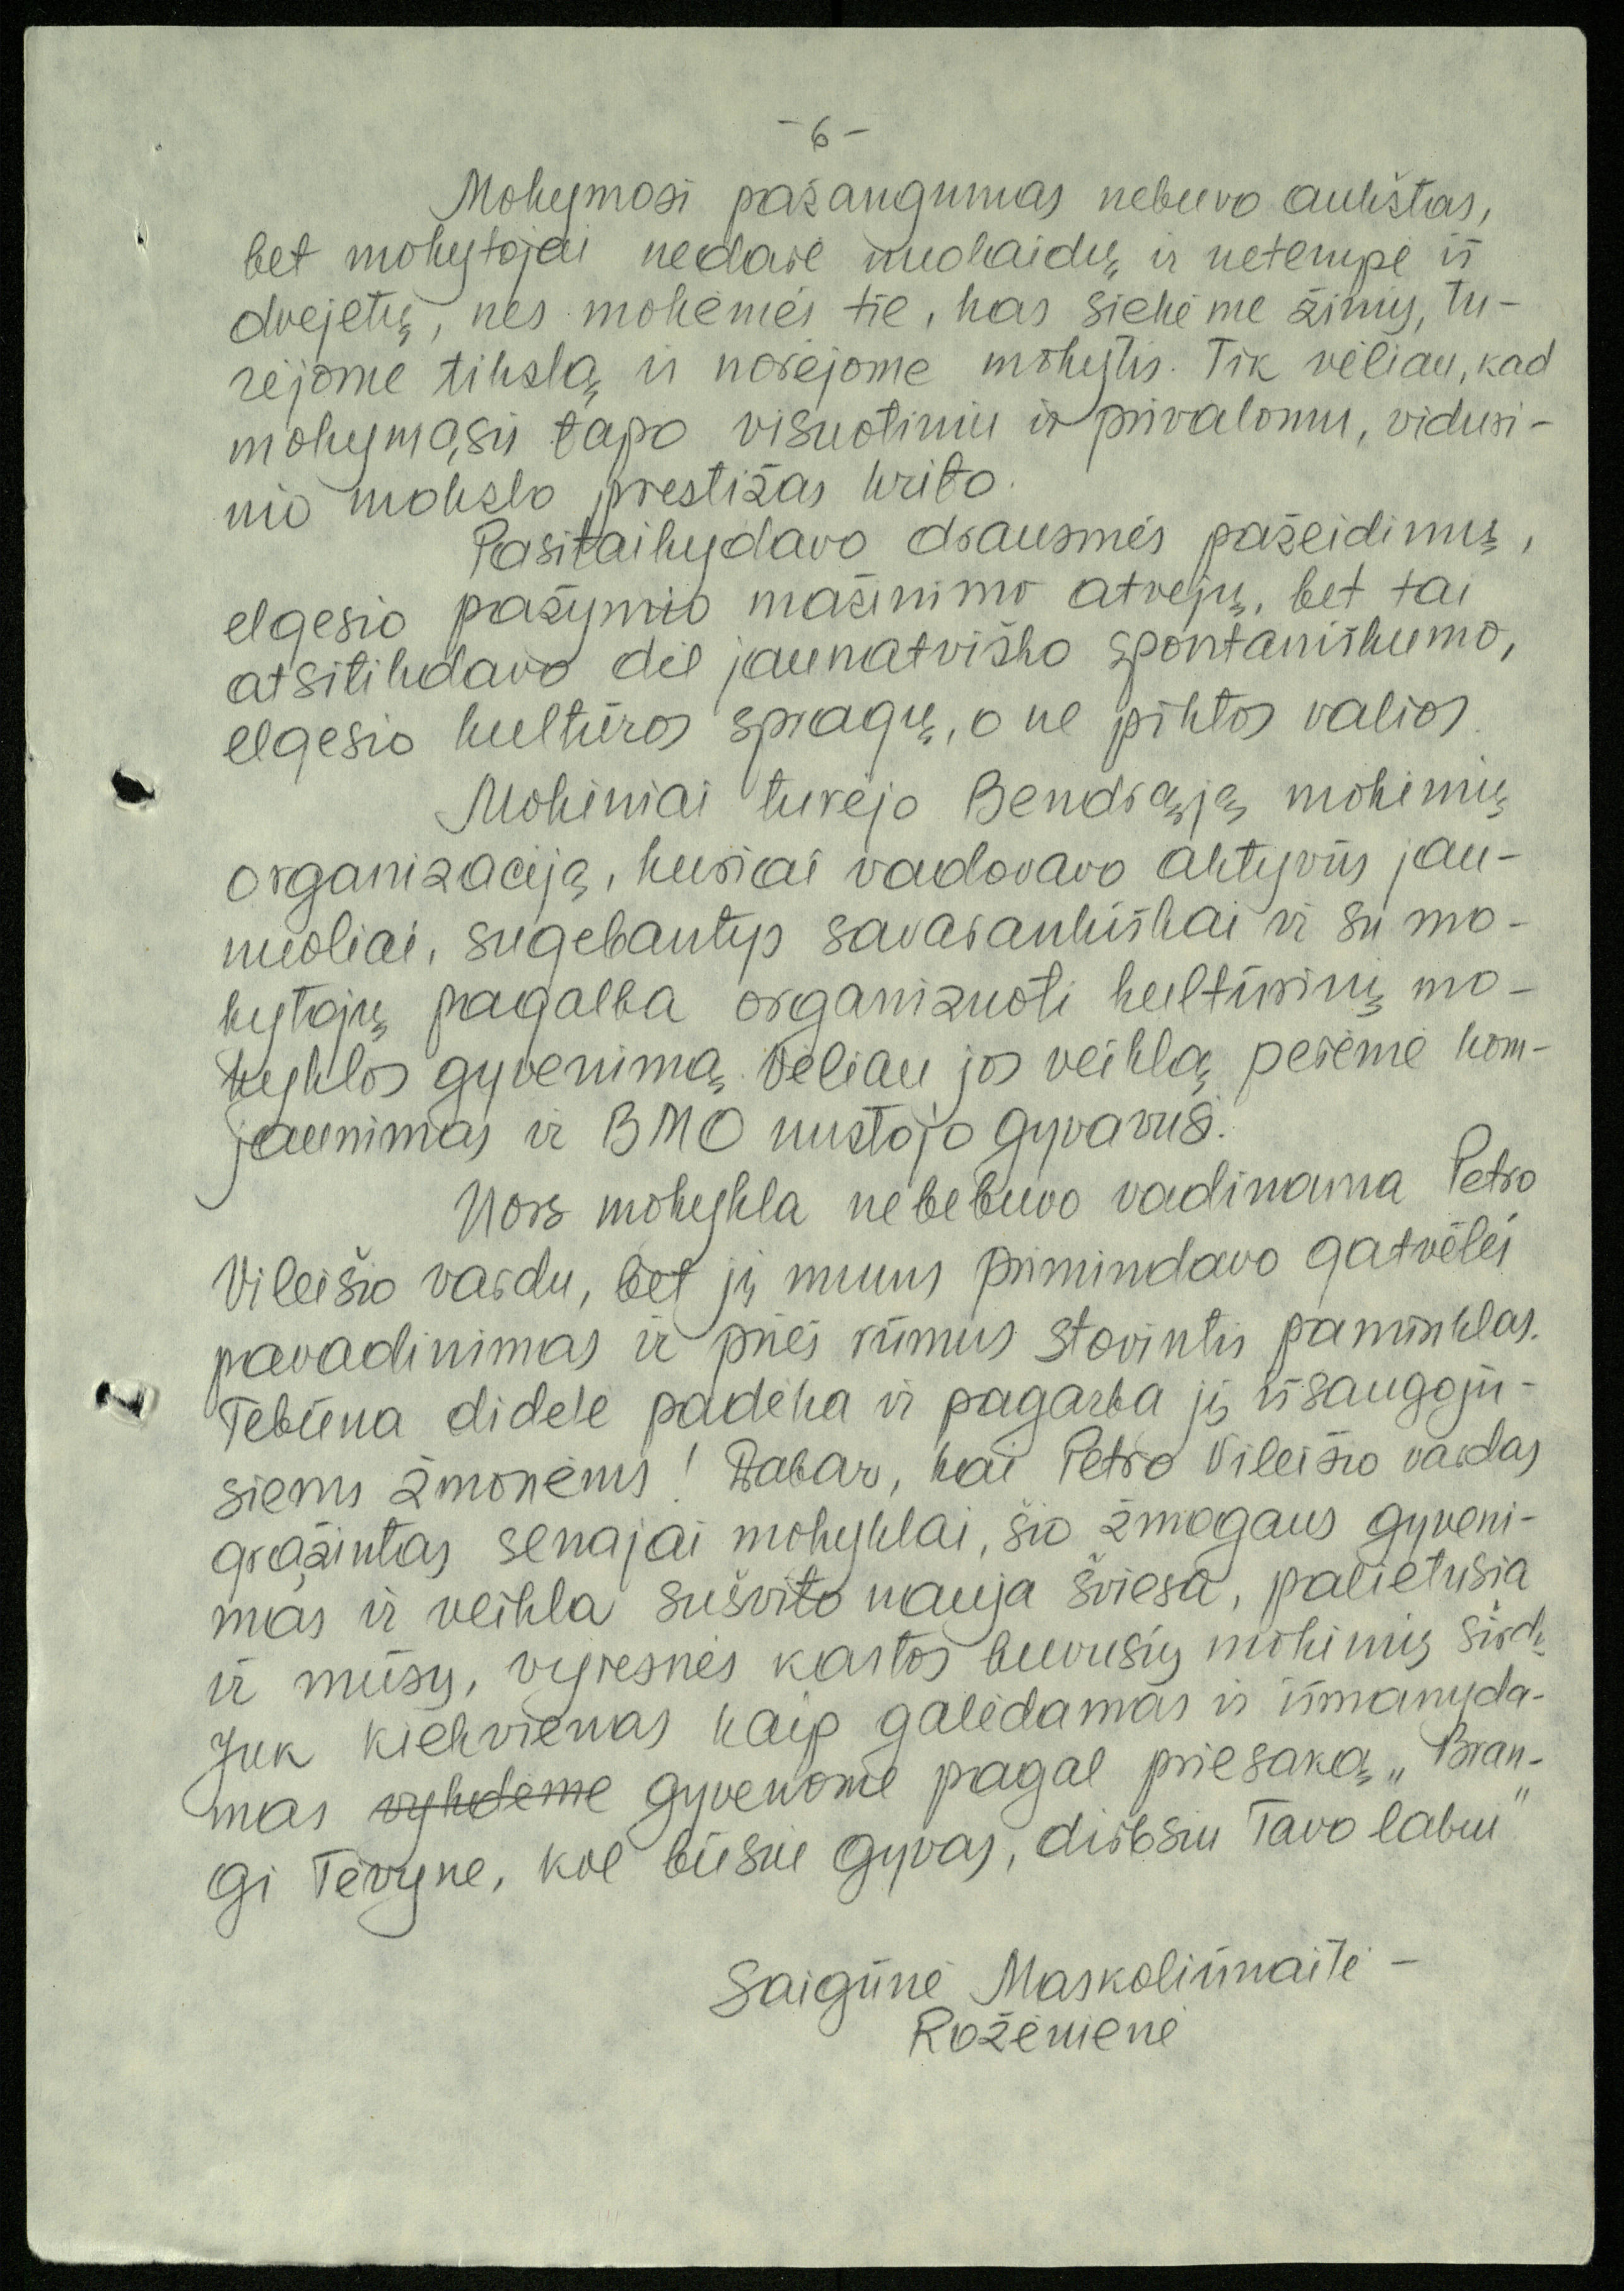 - 6 -
Mokymosi pažangumas nebuvo aukštas,
bet mokytojai nedarė nuolaidų ir netempė iš
dvejetų, nes mokėmės tie, kas siekėme žinių, tu-
rėjome tikslą ir norėjome mokytis. Tik vėliau, kad
mokymąsis tapo visuotiniu ir privalomu, viduri-
nio mokslo prestižas krito.
Pasitaikydavo drausmės pažeidimų,
elgesio pažymio mažinimo atvejų, bet tai
atsitikdavo dėl jaunatviško spontaniškumo,
elgesio kultūros spragų, o ne piktos valios.
Mokiniai turėjo Bendrąją mokinių
organizaciją, kuriai vadovavo aktyvūs jau-
nuoliai, sugebantys savarankiškai ir su mo-
kytojų pagalba organizuoti kultūrinį mo-
kyklos gyvenimą. Vėliau jos veiklą perėmė kom-
jaunimas ir BMO nustojo gyvavusi.
Nors mokykla nebebuvo vadinama Petro
Vileišio vardu, bet jį mums primindavo gatvėlės
pavadinimas ir priės rūmus stovintis paminklas.
Tebūna didelė padėka ir pagarba jį išsaugoju-
siems žmonėms! Dabar, kai Petro Vileišio vardas
grąžintas senajai mokyklai, šio žmogaus gyveni-
mas ir veikla sušvito nauja šviesa, palietusia
ir mūsų, vyresnės kartos buvusių mokinių širdį.
Juk kiekvienas kaip galėdamas ir išmanyda-
mas vykdėme gyvenome pagal priesaką „Bran-
gi Tėvyne, kol būsiu gyvas, dirbsiu Tavo labui"
Saigūnė Maskoliūnaitė -
Rožėnienė